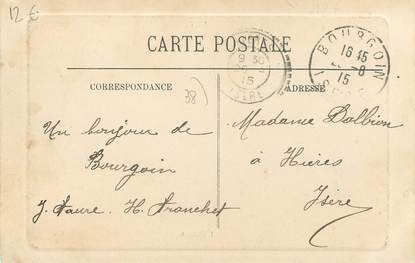 12 €
CARTE POSTALE
BOURGOIN
16 15
8
15
9 30
15
ISERE
CORRESPONDANCE
38)
ADRESSE
Un bonjour de
Bourgoin
J. Faure. H. Franchet
Madame Dolbion
à Hières
Isère